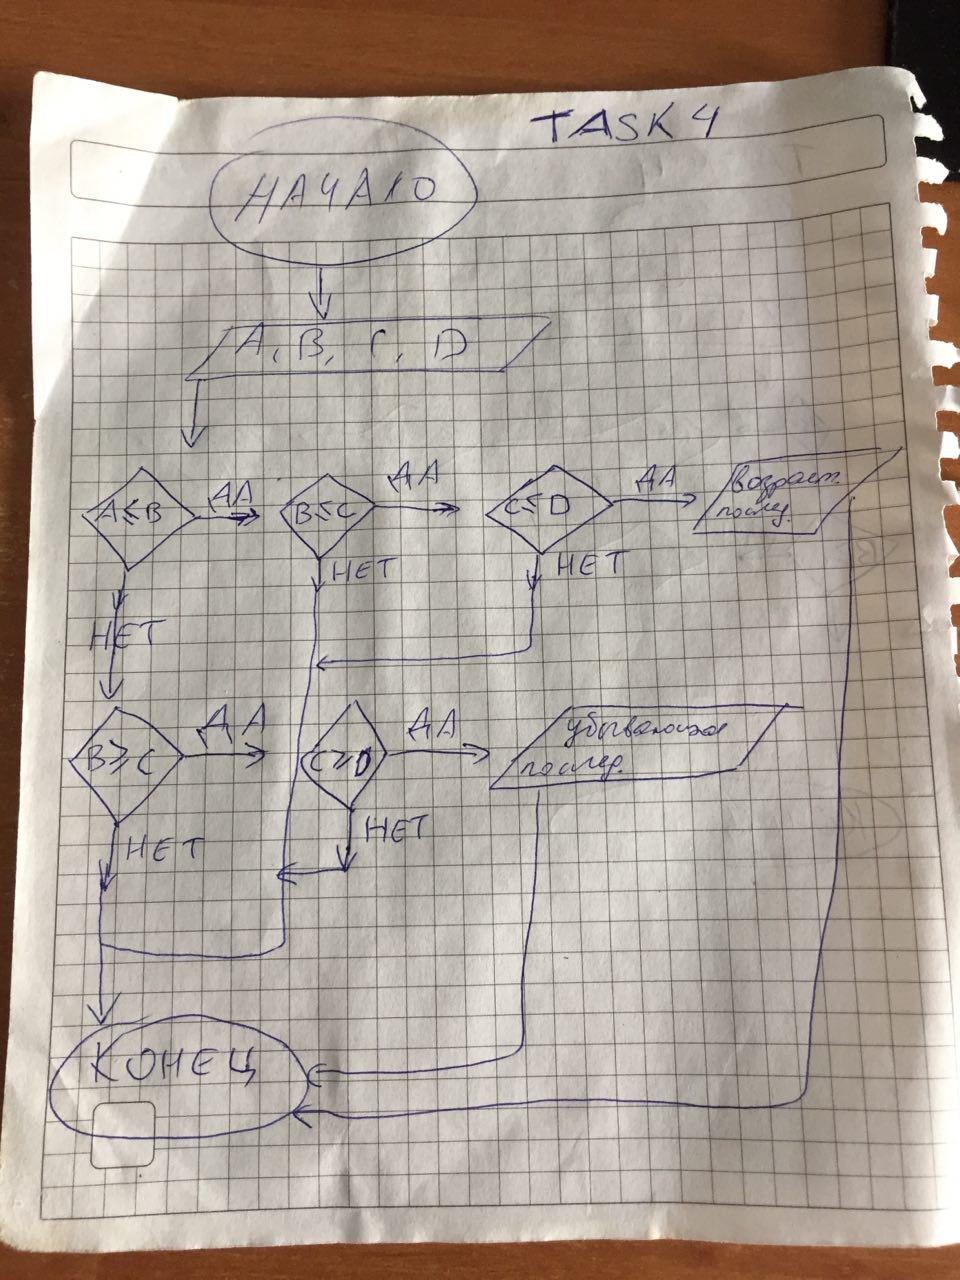 TASK 4
НАЧАЛО
A, B, C, D
A≤B ДА B≤C ДА C≤D ДА возраст.
послед.
НЕТ НЕТ
НЕТ
B≥C ДА C≥D ДА убывающая
послед.
НЕТ НЕТ
КОНЕЦ